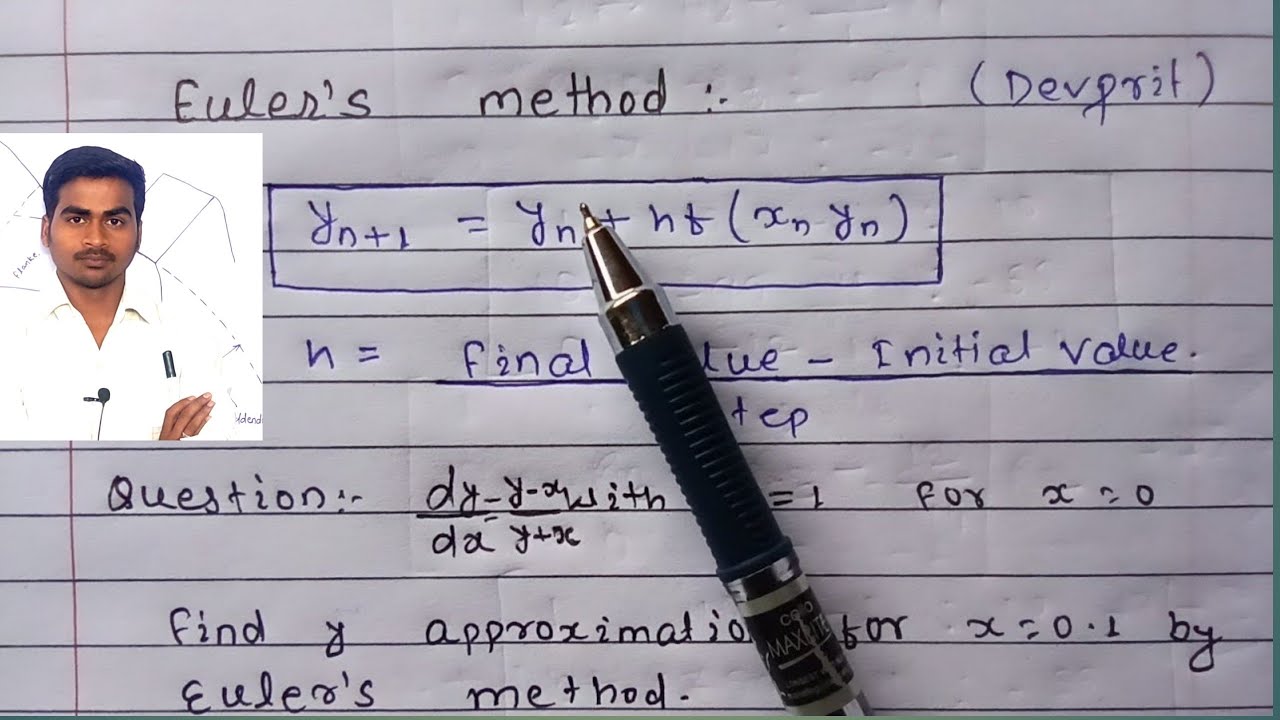 Euler's method :-
(Devprit)
yn+1 = yn + hf (xn yn)
h = Final Value - Initial value.
step
Question:- dy/dx = y-x/y+x with = 1 for x = 0
Find y approximation for x = 0.1 by
Euler's method.
CELLO